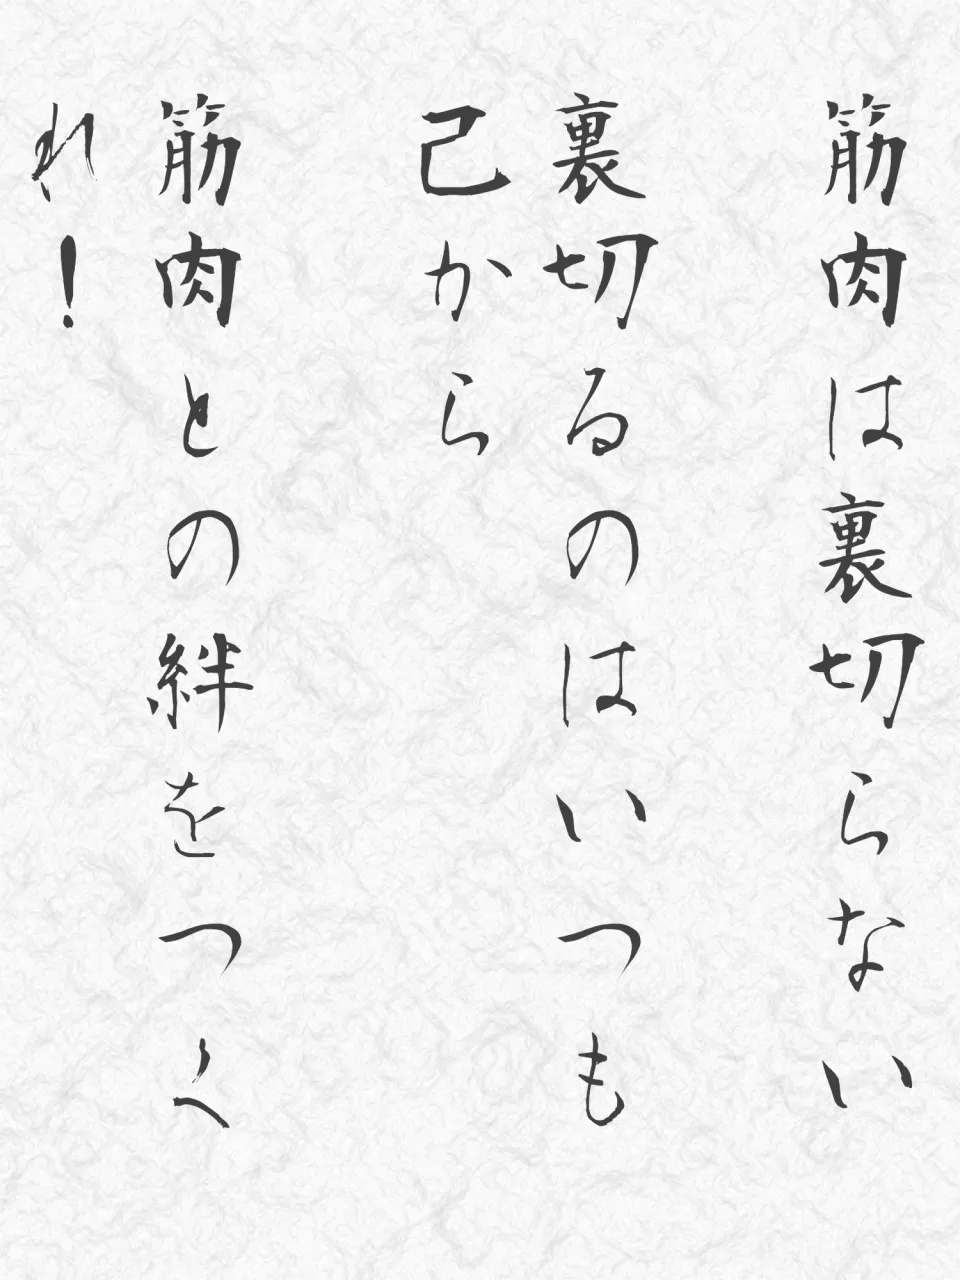 筋肉は裏切らない
裏切るのはいつも
己から
筋肉との絆をつく
れ！